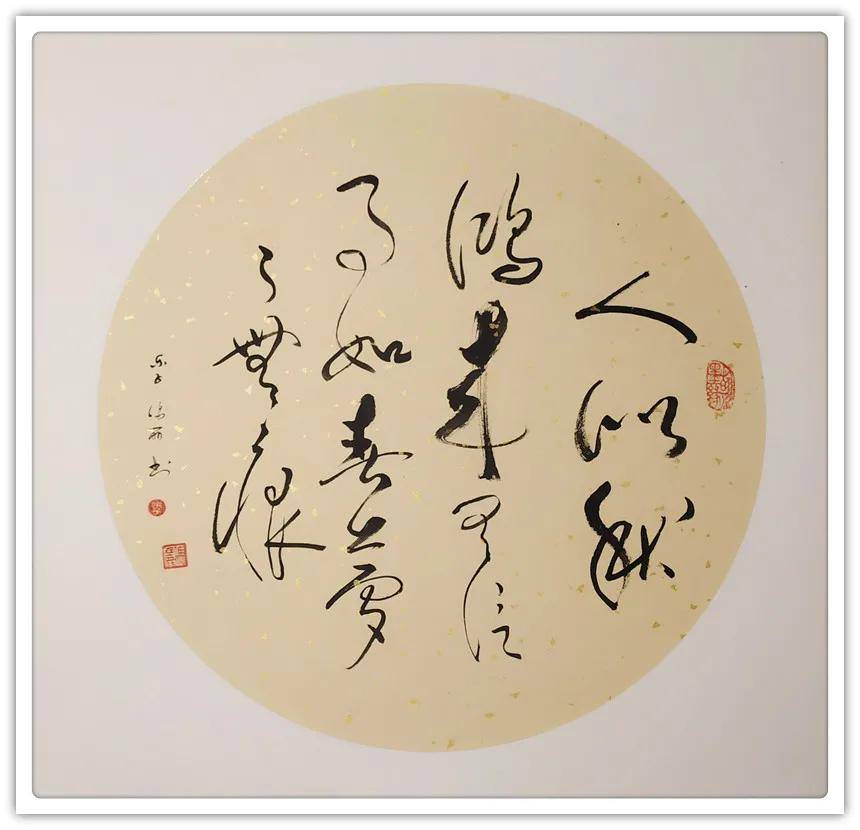 人似秋
鴻来有信
事如春夢
了無痕
书